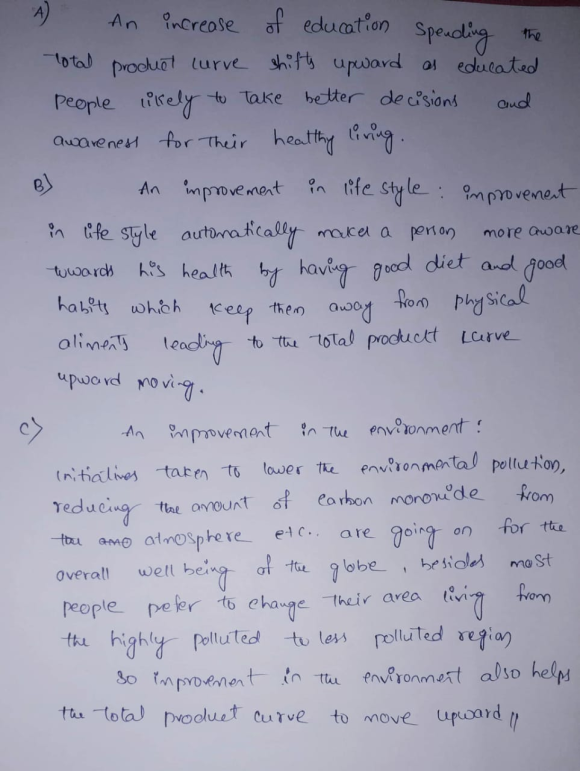 A) An increase of education spending the
Total product curve shifts upward as educated
people likely to Take better decisions and
awareness for Their healthy living.
B) An improvement in life style : improvement
in life style automatically makes a person more aware
tuwards his health by having good diet and good
habits which keep them away from physical
aliments leading to the Total productt curve
upward moving.
C) An improvement in the environment :
initialives taken to lower the environmental pollution,
reducing the amount of carbon monoxide from
the amo atmosphere etc.. are going on for the
overall well being of the globe , besides most
people prefer to change Their area living from
the highly polluted to less polluted region
So improvement in the environment also helps
the Total product curve to move upward //